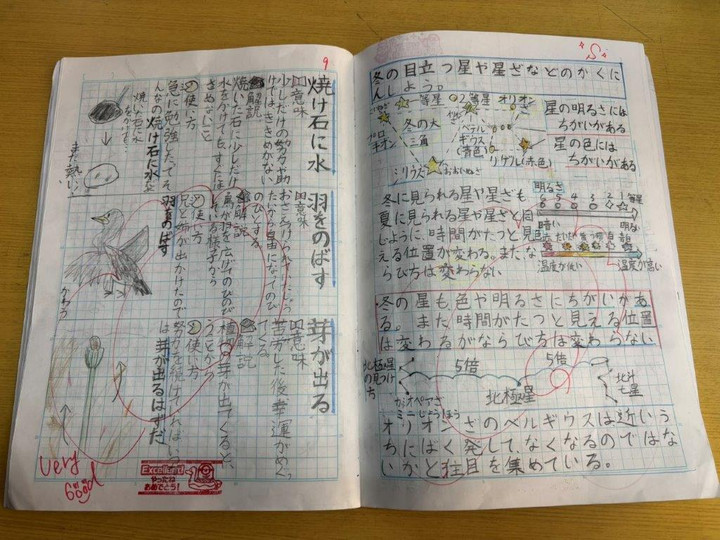 冬の目立つ星や星ざなどのかくに
んしよう。
一等星
2等星
オリオン
冬の大
三角
ベテル
ギウス
(青色)
プロキオン
シリウス
リゲル(赤色)
星の明るさには
ちがいがある
星の色には
ちがいがある
冬に見られる星や星ざも
夏に見られる星や星ざと同
じように、時間がたつと見
える位置が変わる。またな
らび方は変わらない
明るさ
6 5 4 3 2 1 等星
暗い
明るい
温度が低い
温度が高い
冬の星も、色や明るさにちがいがあ
る。また時間がたつと見える位置
は変わるがならび方は変わらない
北極星
の見つけ
方
5倍
5倍
北極星
カシオペアざ
北斗
七星
オリオンざのベルギウスは近いう
ちにはく発して、なくなるのではな
いかと注目を集めている。
9
焼け石に水
意味
少しだけの努力や助
けではききめがない
解説
焼いた石に少しだけ
水をかけても
使い方
んなの焼け石に水だ
焼け石に水
まだ熱い!
羽をのばす
意味
たから自由になってのび
のびとする
解説
鳥が羽を広げてのびのび
している様子から
使い方
兄と姉が出かけたので
羽をのばす
芽が出る
意味
苦労した後、幸運がめぐっ
てくる
解説
植物の芽が出てくると、
いうことから
使い方
努力を続ければいつ
は芽が出るはずだ
Very
Good
Excellent!